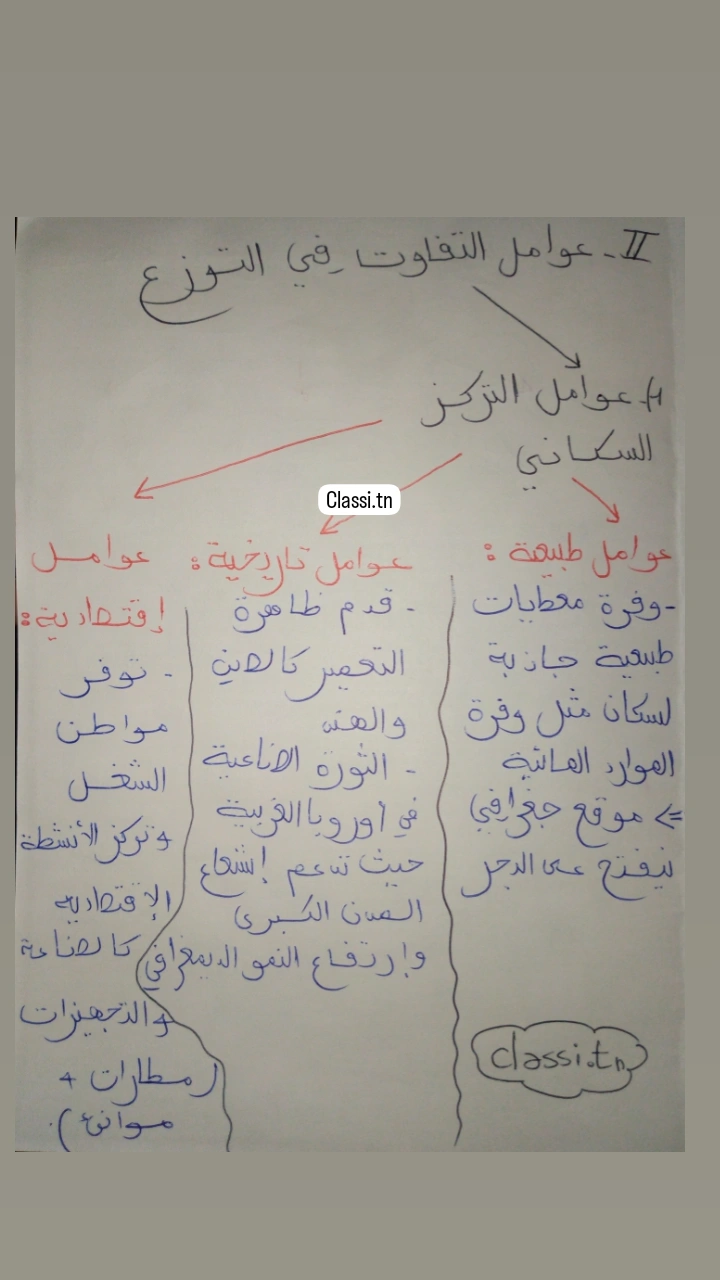 II - عوامل التفاوت في التوزع
1/- عوامل التركز
السكاني
Classi.tn
عوامل طبيعية :
- وفرة معطيات
طبيعية جاذبة
لسكان مثل وفرة
الموارد المائية
=> موقع جغرافي
ينفتح على البحر
عوامل تاريخية :
- قدم ظاهرة
التعمير كالصين
والهند
- الثورة الصناعية
في أوروبا الغربية
حيث تدعم إشعاع
المدن الكبرى
وإرتفاع النمو الديمغرافي
عوامل
إقتصادية :
- توفر
مواطن
الشغل
+ تركز الأنشطة
الإقتصادية
كالصناعة
والتجهيزات
(مطارات +
موانئ).
classi.tn